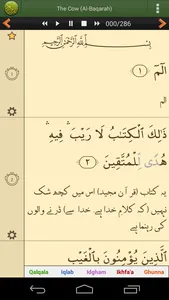 The Cow (Al-Baqarah)
000/286
بِسْمِ اللَّهِ الرَّحْمَٰنِ الرَّحِيمِ
الٓمٓ ﴿١﴾
ذَٰلِكَ الْكِتَابُ لَا رَيْبَ ۛ فِيهِ ۛ
هُدًى لِّلْمُتَّقِينَ ﴿٢﴾
یہ کتاب (قرآن مجید) اس میں کچھ شک
نہیں (کہ کلامِ خدا ہے۔ خدا سے) ڈرنے والوں کی
رہنما ہے
الَّذِينَ يُؤْمِنُونَ بِالْغَيْبِ
Qalqala Iqlab Idgham Ikhfa'a Ghunna